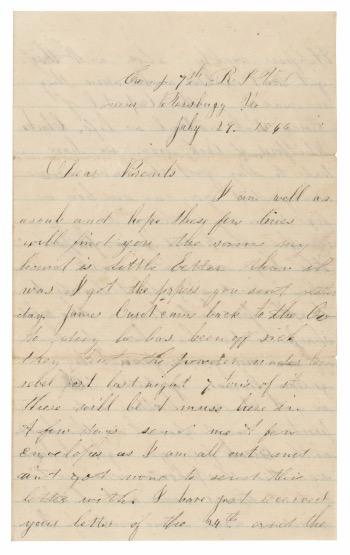 Camp 7th R I Vol
near Petersburg Va
July 29. 1864
Dear Parents
I am well as
usual and hope these few lines
will find you the same my
hand is little better than it
was I got the papers you sent
day. James came back to the Co
to day he has been off sick
they put the powder under the
rebel fort last night 7 tons of it
there will be a muss here in
a few days send me a few
envelopes as I am all out and
aint got none to send this
letter with. I have just received
your letter of the 24th and the